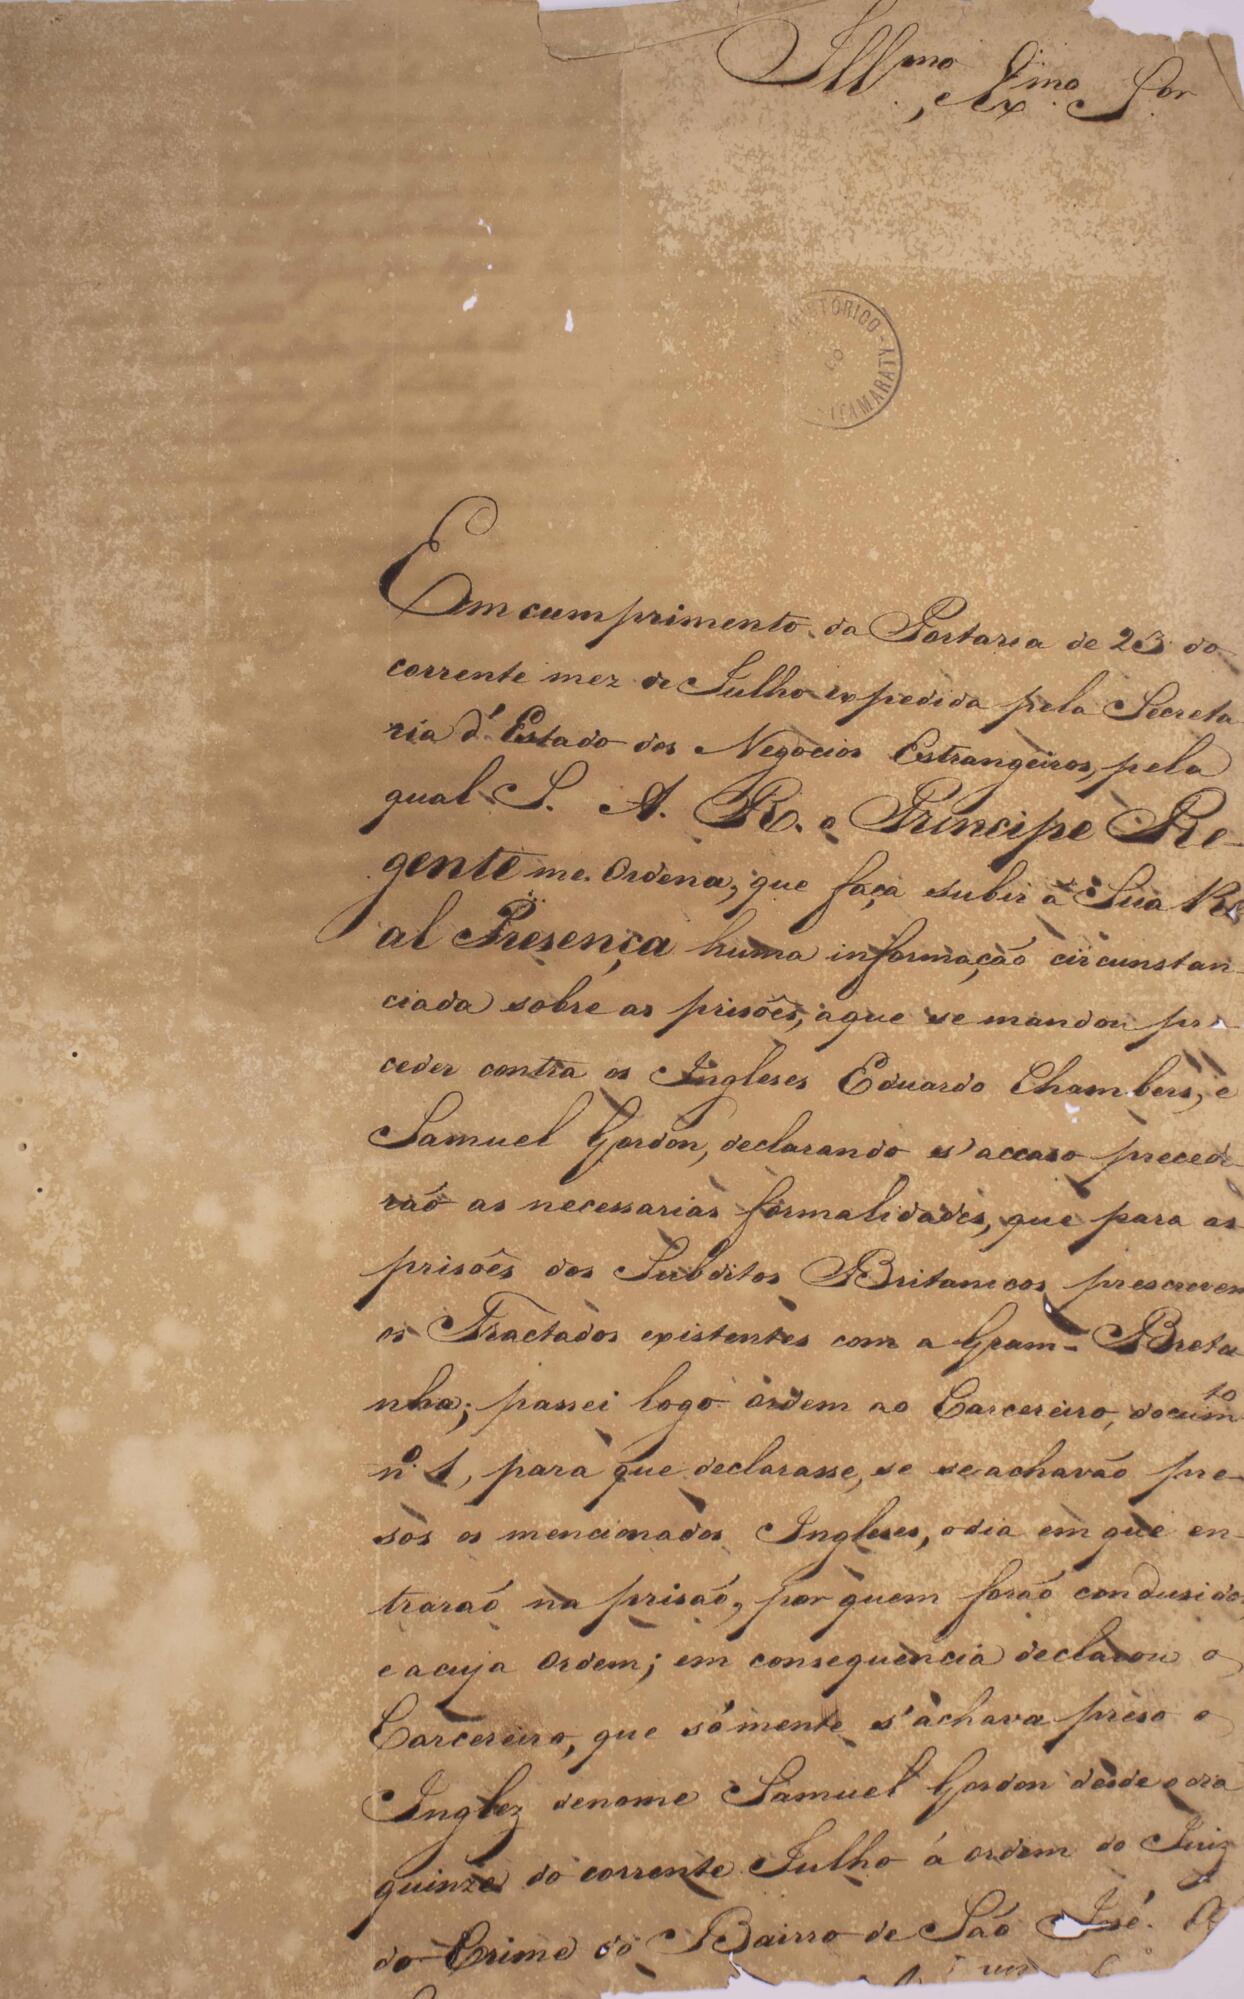 Ill.mo, e Ex.mo Sor
HISTORICO - ITAMARATY
Em cumprimento da Portaria de 23 do
corrente mez de Julho expedida pela Secreta
ria d'Estado dos Negocios Estrangeiros, pela
qual S. A. R. o Principe Re-
gente me Ordena, que faça subir á Sua Re
al Presença huma informação circunstan-
ciada sobre as prisões, aque se mandou pro
ceder contra os Ingleses Eduardo Chambers, e
Samuel Gordon, declarando s'accaso precede
rão as necessarias formalidades, que para as
prisões dos Subditos Britanicos prescrevem
os Tractados existentes com a Gram-Breta
nha; passei logo ordem ao Carcereiro, docum.to
n.º 1, para que declarasse, se se achavão pre-
sos os mencionados Ingleses, o dia em que en-
trarão na prisão, por quem forão condusidos
e a cuja Ordem; em consequencia declarou o
Carcereiro, que sómente s'achava preso o
Inglez de nome Samuel Gordon desde o dia
quinze do corrente Julho á ordem do Juiz
do Crime do Bairro de São José.